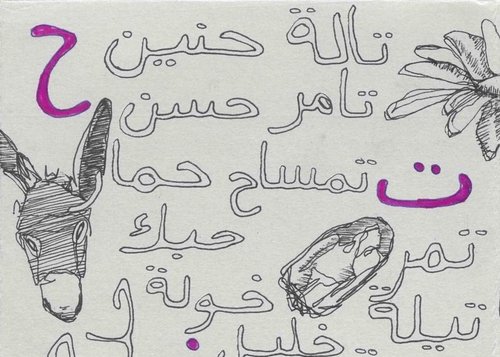 تالة حنين ح
تامر حسن
ت تمساح حما
حبك
تمر
خولة
تيلة
خليل